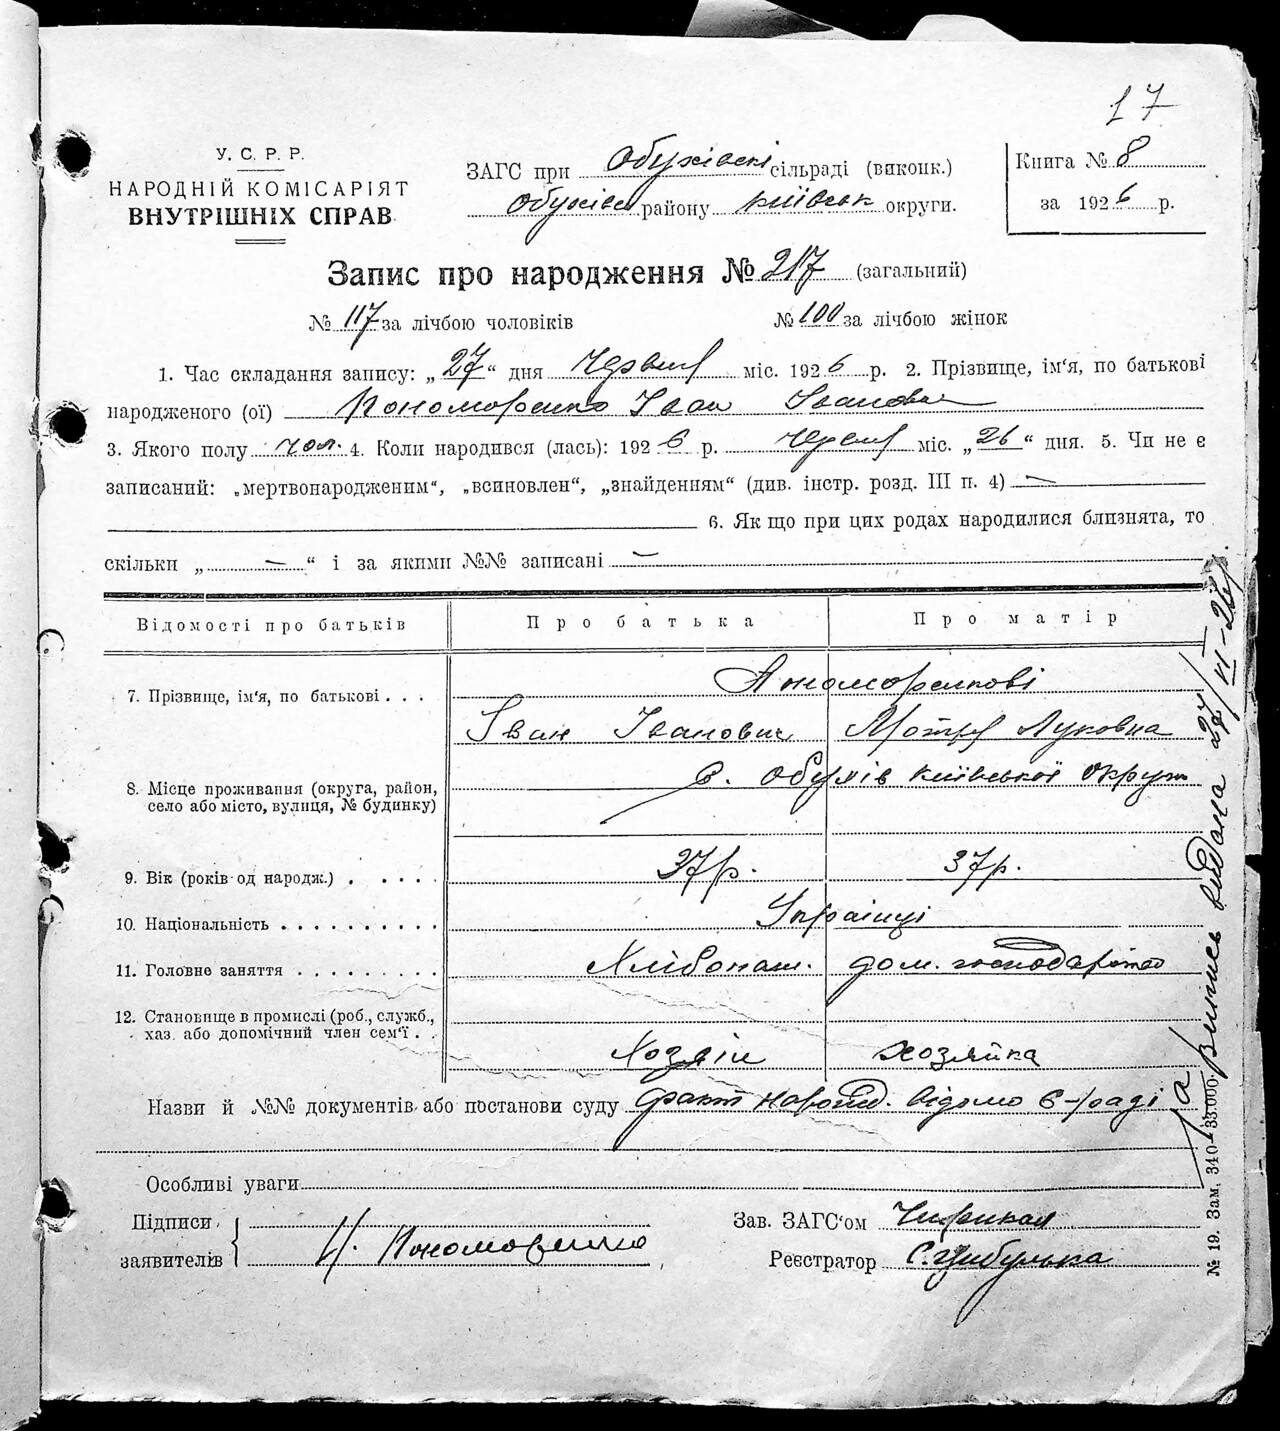 17
У. С. Р. Р.
НАРОДНІЙ КОМІСАРІЯТ
ВНУТРІШНІХ СПРАВ
ЗАГС при Обухівскі сільраді (виконк.)
Обухівс району київськ округи.
Книга № 8
за 1926 р.
Запис про народження № 217 (загальний)
№ 117 за лічбою чоловіків № 100 за лічбою жінок
1. Час складання запису: „27“ дня Червня міс. 1926 р. 2. Прізвище, ім'я, по батькові
народженого (ої) Пономоренко Іван Іванович
3. Якого полу чол. 4. Коли народився (лась): 1926 р. Червня міс. „26“ дня. 5. Чи не є
записаний: „мертвонародженим“, „всиновлен“, „знайденням“ (див. інстр. розд. III п. 4) —
6. Як що при цих родах народилися близнята, то
скільки „ — “ і за якими №№ записані —
Відомості про батьків Про батька Про матір
7. Прізвище, ім'я, по батькові . . . Пономоренкові
Іван Іванович Мотря Луковна
8. Місце проживання (округа, район,
село або місто, вулиця, № будинку) с. Обухів київської округи
9. Вік (років од народж.) . . . . . 37 р. 37 р.
10. Національність . . . . . . . . . . Українці
11. Головне заняття . . . . . . . . . Хлібопаш. дом. господарство
12. Становище в промислі (роб., служб.,
хаз. або допомічний член сем'ї . . Хозяїн хозяйка
Назви й №№ документів або постанови суду факт народ. відомо с-раді
Особливі уваги
Підписи
заявителів { И. Пономоренко
Зав. ЗАГС'ом
Реєстратор С. Цибулька
Випись видана 27/VI-26р.
№ 19. Зам. 340—33.000.